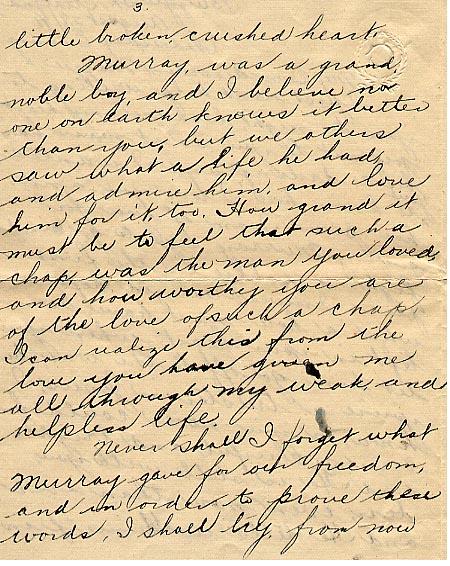 3.
little broken, crushed heart.
Murray, was a grand
noble boy, and I believe no
one on earth knows it better
than you, but we others
saw what a life he had,
and admire him, and love
him for it, too. How grand it
must be to feel that such a
chap, was the man you loved,
and how worthy you are
of the love of such a chap.
I can ralize this from the
love you have given me
all through my weak and
helpless life.
Never shall I forget what
Murray gave for our freedom,
and in order to prove these
words, I shall try, from now